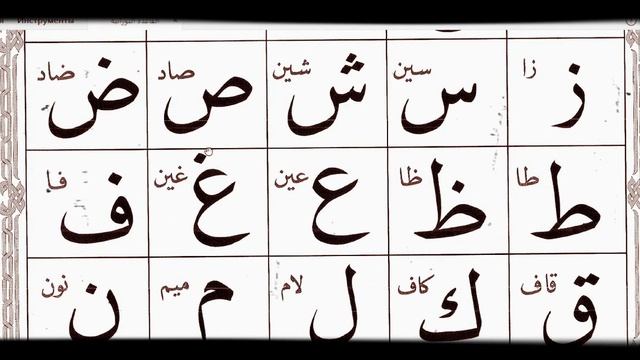 Инструменты
ز زا س سين ش شين ص صاد ض ضاد
ط طا ظ ظا ع عين غ غين ف فا
ق قاف ك كاف ل لام م ميم ن نون